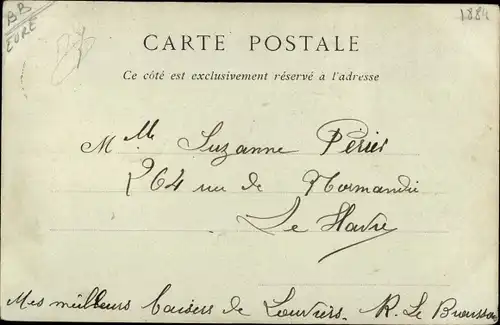 BB
EURE
1884
CARTE POSTALE
Ce côté est exclusivement réservé à l'adresse
Mlle Suzanne Périer
264 rue de Normandie
Le Havre
Mes meilleurs baisers de Louviers. R. Le